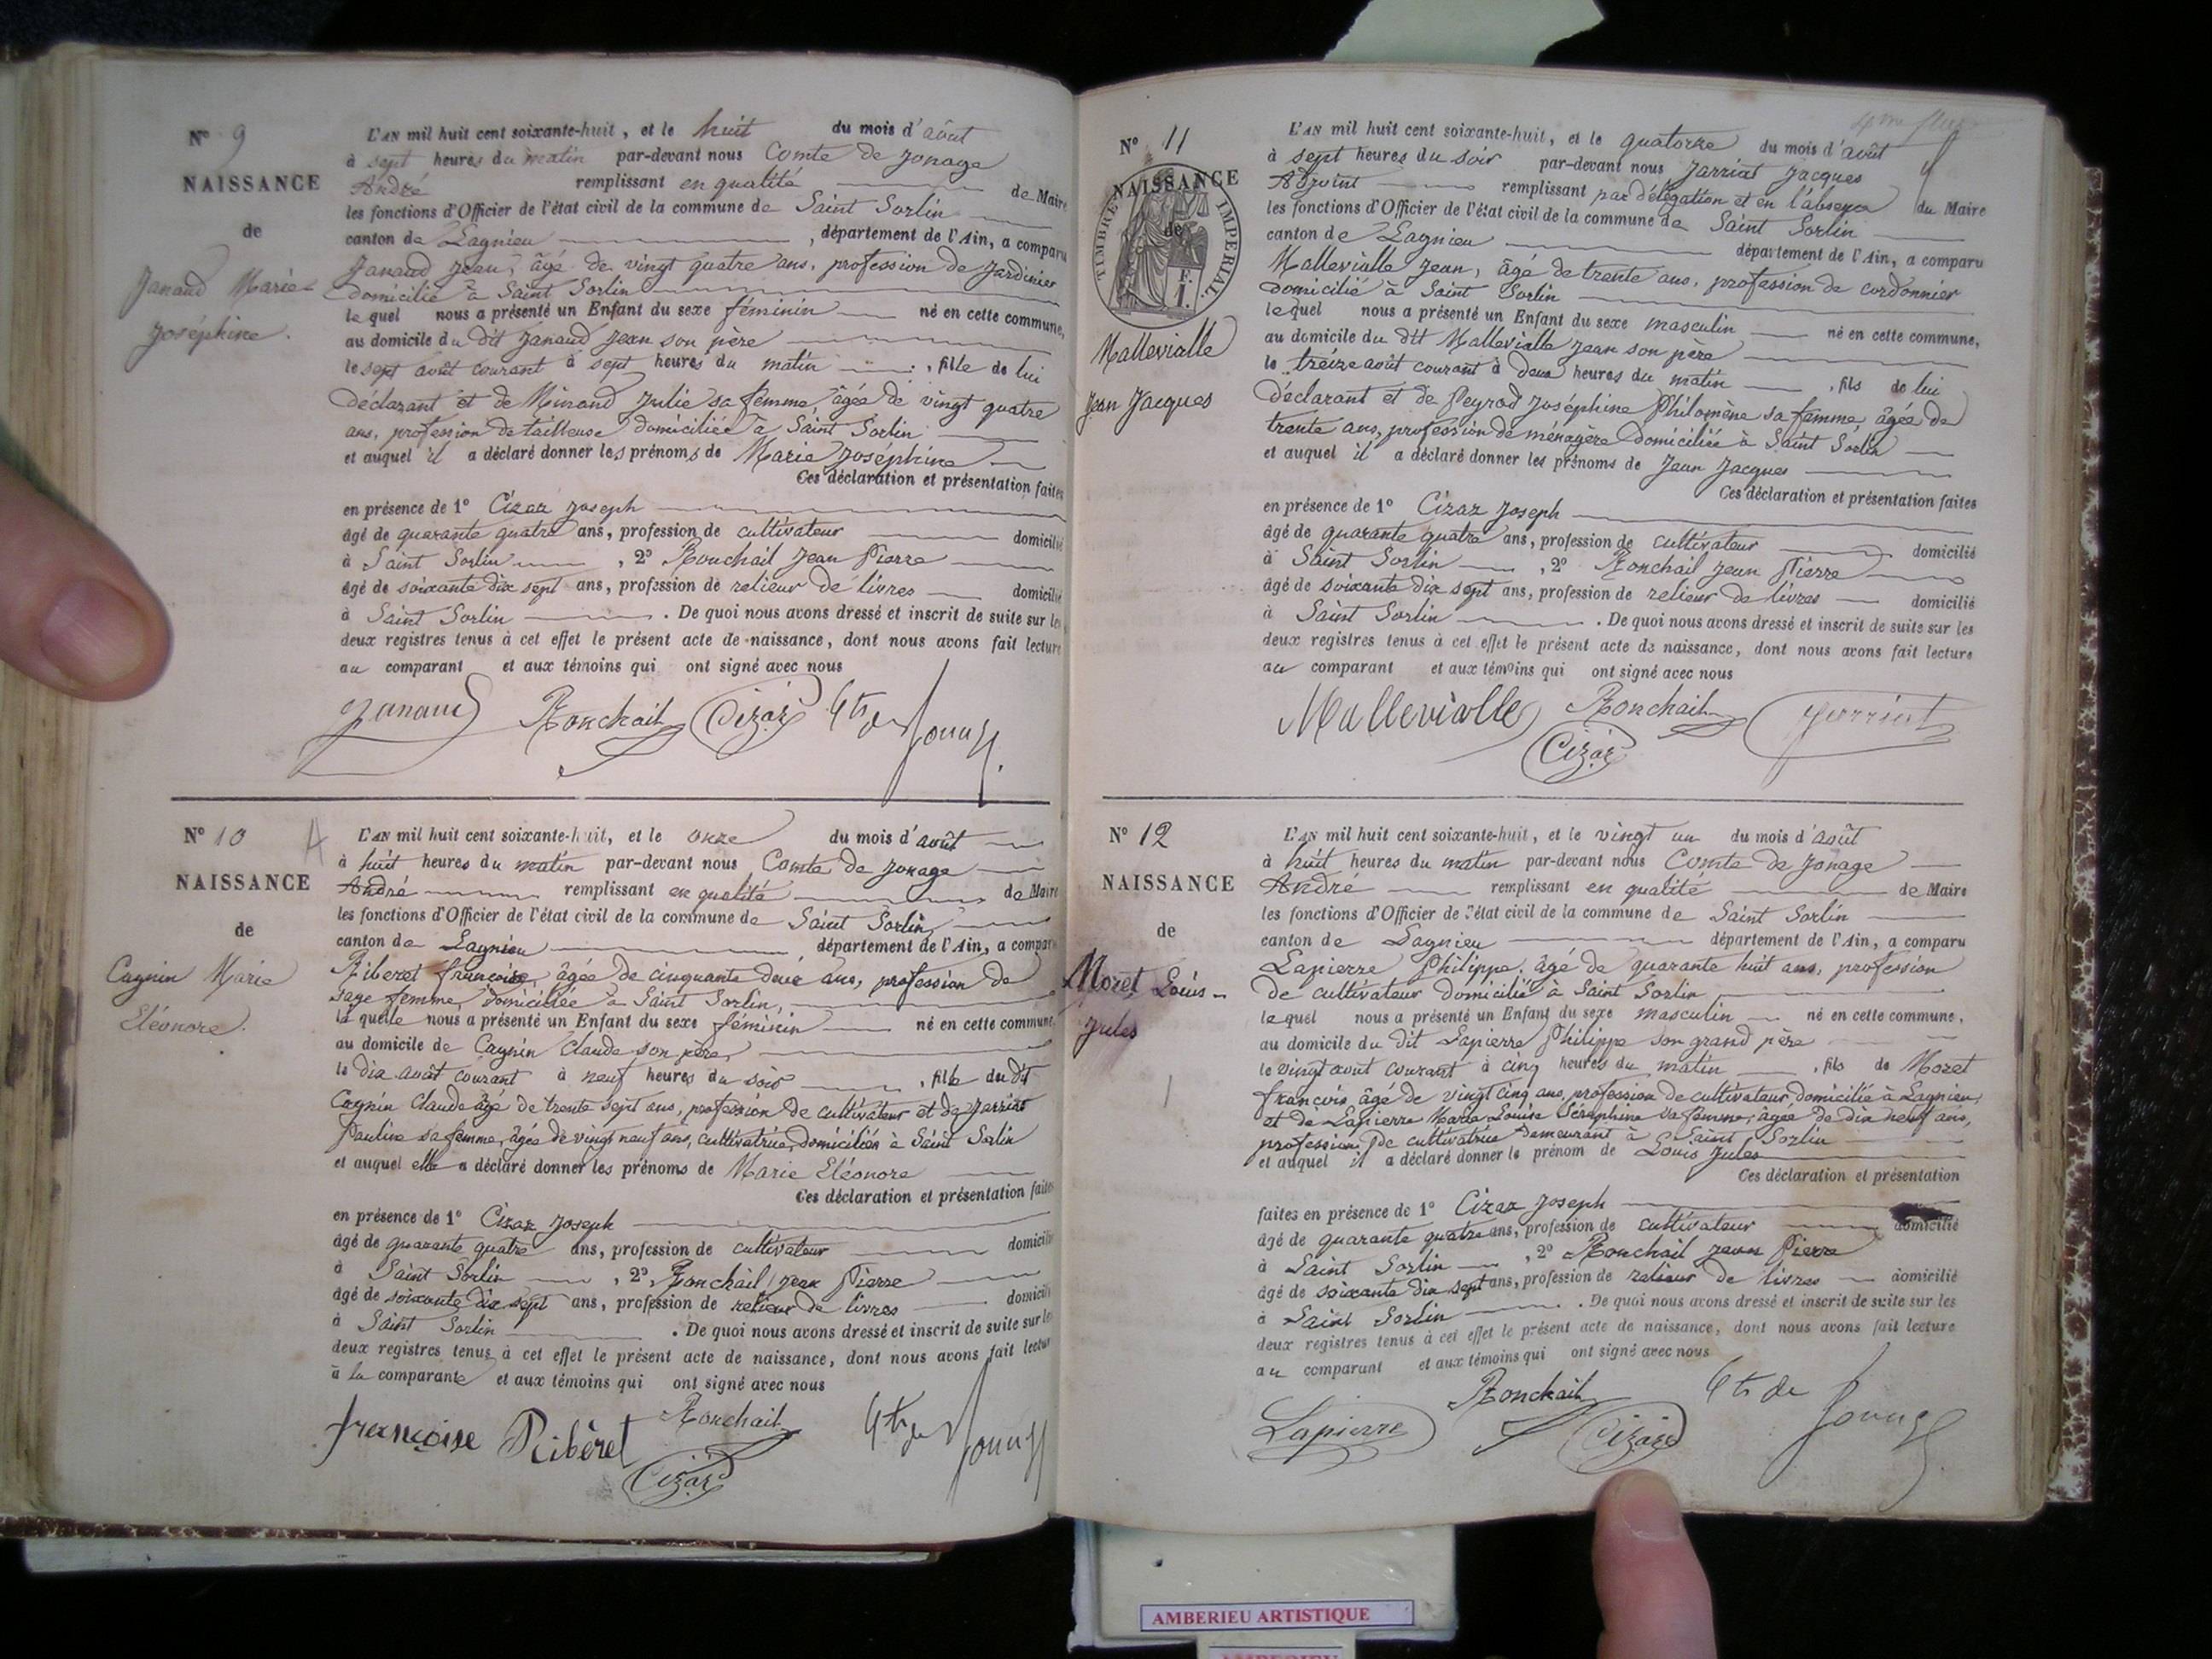 N° 9
NAISSANCE
de
Janaud Marie
Joséphine.
L'AN mil huit cent soixante-huit, et le huit du mois d'août
à sept heures du matin par-devant nous Comte de Jonage
André remplissant en qualité de Maire
les fonctions d'Officier de l'état civil de la commune de Saint Sorlin
canton de Lagnieu, département de l'Ain, a comparu
Janaud Jean, âgé de vingt quatre ans, profession de Jardinier
domicilié à Saint Sorlin
lequel nous a présenté un Enfant du sexe féminin né en cette commune,
au domicile du dit Janaud Jean son père
le sept août courant à sept heures du matin, fille de lui
déclarant et de Minand Julie sa femme âgée de vingt quatre
ans, profession de tailleuse domiciliée à Saint Sorlin
et auquel il a déclaré donner les prénoms de Marie Joséphine
Ces déclaration et présentation faites
en présence de 1° Cizaz Joseph
âgé de quarante quatre ans, profession de cultivateur domicilié
à Saint Sorlin, 2° Ronchail Jean Pierre
âgé de soixante dix sept ans, profession de relieur de livres domicilié
à Saint Sorlin. De quoi nous avons dressé et inscrit de suite sur les
deux registres tenus à cet effet le présent acte de naissance, dont nous avons fait lecture
au comparant et aux témoins qui ont signé avec nous
Janaud Ronchail Cizaz Cte de Jonage
N° 10
NAISSANCE
de
Cagnin Marie
Eléonore.
L'AN mil huit cent soixante-huit, et le onze du mois d'août
à huit heures du matin par-devant nous Comte de Jonage
André remplissant en qualité de Maire
les fonctions d'Officier de l'état civil de la commune de Saint Sorlin,
canton de Lagnieu département de l'Ain, a comparu
Riberet françoise, âgée de cinquante deux ans, profession de
sage femme, domiciliée à Saint Sorlin,
laquelle nous a présenté un Enfant du sexe féminin né en cette commune,
au domicile de Cagnin Claude son père,
le dix août courant à neuf heures du soir, fille du dit
Cagnin Claude âgé de trente sept ans, profession de cultivateur et de Jarriat
Pauline sa femme, âgée de vingt neuf ans, cultivatrice, domiciliés à Saint Sorlin
et auquel elle a déclaré donner les prénoms de Marie Eléonore
Ces déclaration et présentation faites
en présence de 1° Cizaz Joseph
âgé de quarante quatre ans, profession de cultivateur domicilié
à Saint Sorlin, 2° Ronchail Jean Pierre
âgé de soixante dix sept ans, profession de relieur de livres domicilié
à Saint Sorlin. De quoi nous avons dressé et inscrit de suite sur les
deux registres tenus à cet effet le présent acte de naissance, dont nous avons fait lecture
à la comparante et aux témoins qui ont signé avec nous
françoise Ribèret Ronchail Cizaz Cte de Jonage
N° 11
NAISSANCE
de
TIMBRE IMPERIAL
F.
1.
Mallevialle
Jean Jacques
L'AN mil huit cent soixante-huit, et le quatorze du mois d'août
à sept heures du soir par-devant nous Jarriat Jacques
Adjoint remplissant par délégation et en l'absence du Maire
les fonctions d'Officier de l'état civil de la commune de Saint Sorlin
canton de Lagnieu département de l'Ain, a comparu
Mallevialle Jean, âgé de trente ans, profession de cordonnier
domicilié à Saint Sorlin
lequel nous a présenté un Enfant du sexe masculin né en cette commune,
au domicile du dit Mallevialle Jean son père
le treize août courant à deux heures du matin, fils de lui
déclarant et de Peyrod Joséphine Philomène sa femme, âgée de
trente ans, profession de ménagère domiciliée à Saint Sorlin
et auquel il a déclaré donner les prénoms de Jean Jacques
Ces déclaration et présentation faites
en présence de 1° Cizaz Joseph
âgé de quarante quatre ans, profession de cultivateur domicilié
à Saint Sorlin, 2° Ronchail Jean Pierre
âgé de soixante dix sept ans, profession de relieur de livres domicilié
à Saint Sorlin. De quoi nous avons dressé et inscrit de suite sur les
deux registres tenus à cet effet le présent acte de naissance, dont nous avons fait lecture
au comparant et aux témoins qui ont signé avec nous
Mallevialle Ronchail Cizaz Jarriat
N° 12
NAISSANCE
de
Moret Louis-
Jules
L'AN mil huit cent soixante-huit, et le vingt un du mois d'août
à huit heures du matin par-devant nous Comte de Jonage
André remplissant en qualité de Maire
les fonctions d'Officier de l'état civil de la commune de Saint Sorlin
canton de Lagnieu département de l'Ain, a comparu
Lapierre Philippe, âgé de quarante huit ans, profession
de cultivateur domicilié à Saint Sorlin
lequel nous a présenté un Enfant du sexe masculin né en cette commune,
au domicile du dit Lapierre Philippe son grand père
le vingt août courant à cinq heures du matin, fils de Moret
françois, âgé de vingt cinq ans, profession de cultivateur, domicilié à Lagnieu,
et de Lapierre Marie Louise Séraphine sa femme, âgée de dix neuf ans,
profession de cultivatrice demeurant à Saint Sorlin
et auquel il a déclaré donner le prénom de Louis Jules
Ces déclaration et présentation
faites en présence de 1° Cizaz Joseph
âgé de quarante quatre ans, profession de cultivateur domicilié
à Saint Sorlin, 2° Ronchail Jean Pierre
âgé de soixante dix sept ans, profession de relieur de livres domicilié
à Saint Sorlin. De quoi nous avons dressé et inscrit de suite sur les
deux registres tenus à cet effet le présent acte de naissance, dont nous avons fait lecture
au comparant et aux témoins qui ont signé avec nous
Lapierre Ronchail Cizaz Cte de Jonage
AMBERIEU ARTISTIQUE